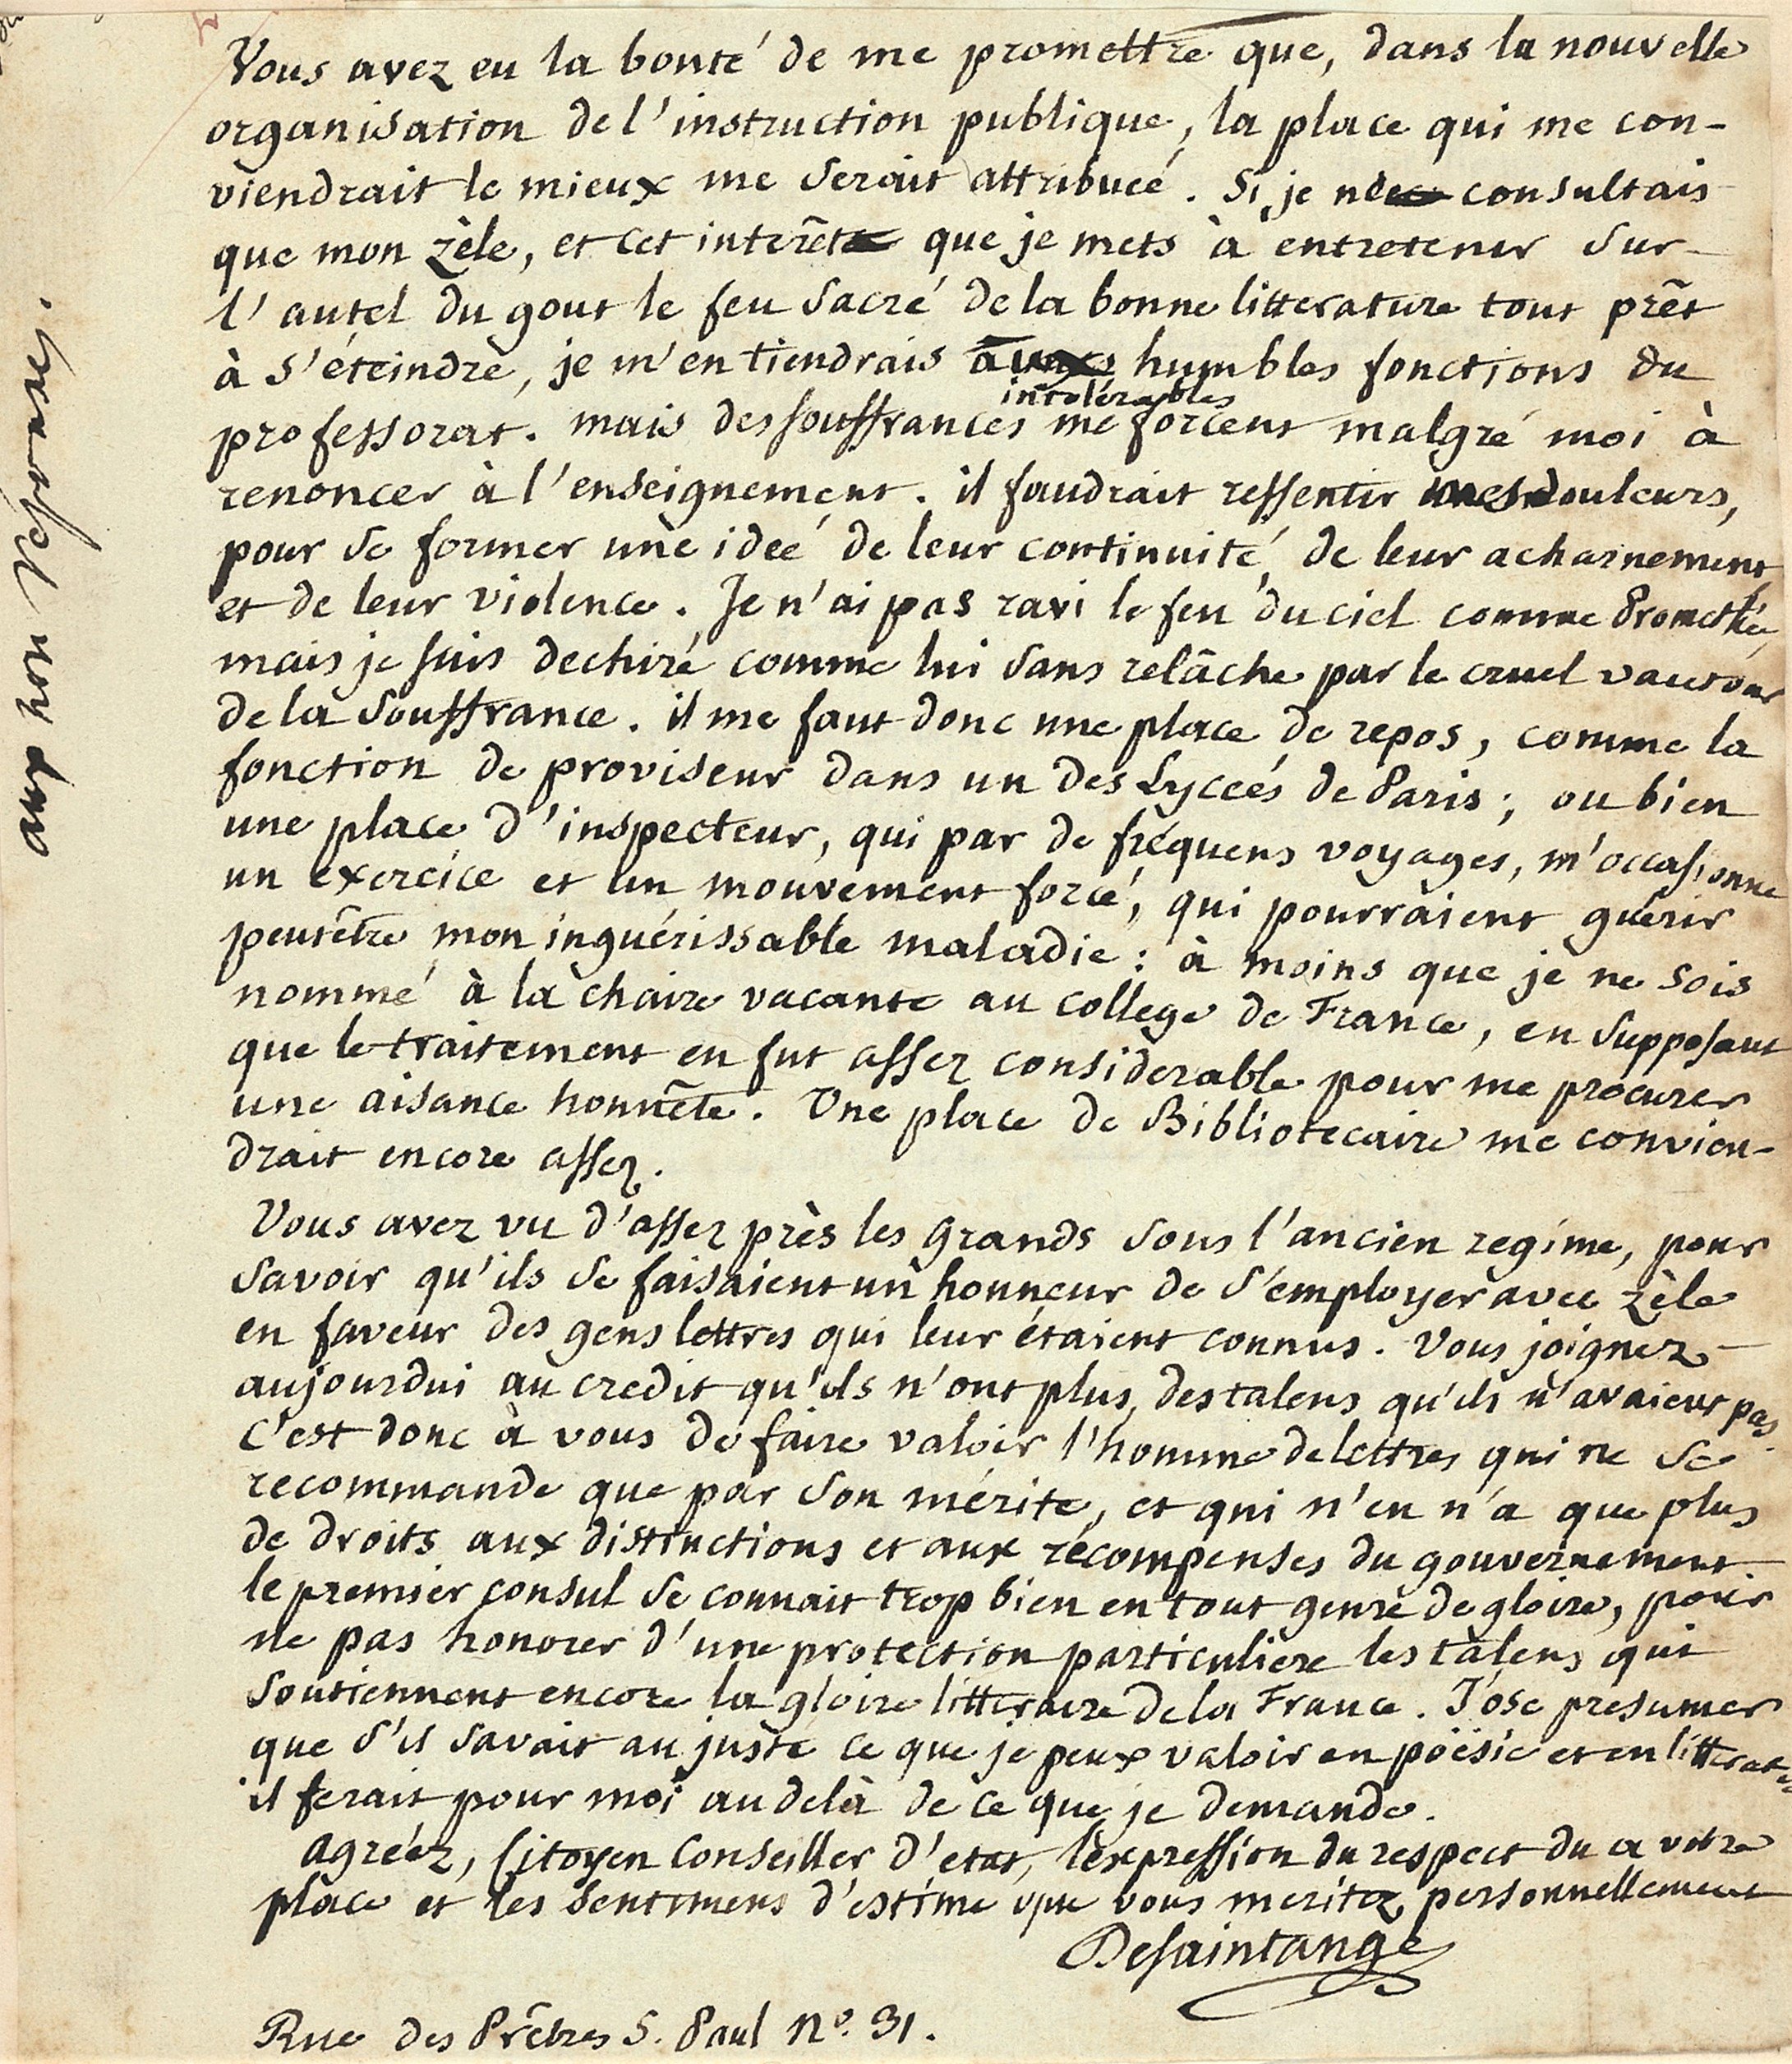 Vous avez eu la bonté de me promettre que, dans la nouvelle
organisation de l'instruction publique, la place qui me con-
viendrait le mieux me serait attribuée. Si je ne consultais
que mon zèle, et cet interêt que je mets à entretenir sur
l'autel du gout le feu sacré de la bonne litterature tout prêt
à s'éteindre, je m'en tiendrais aux humbles fonctions du
intolérables
professorat. mais des souffrances me forcent malgré moi à
renoncer à l'enseignement. il faudrait ressentir mes douleurs,
pour se former une idée de leur continuité, de leur acharnement,
et de leur violence. Je n'ai pas ravi le feu du ciel comme Promethée,
mais je suis dechiré comme lui sans relâche par le cruel vautour
de la souffrance. il me faut donc une place de repos, comme la
fonction de proviseur dans un des Lycées de Paris; ou bien
une place d'inspecteur, qui par de fréquens voyages, m'occasionne
un exercice et un mouvement forcé, qui pourraient guérir
peutêtre mon inguérissable maladie: à moins que je ne sois
nommé à la chaire vacante au college de France, en supposant
que le traitement en fut assez considerable pour me procurer
une aisance honnête. Une place de Bibliotecaire me convien-
drait encore assez.
Vous avez vu d'assez près les grands sous l'ancien regime, pour
savoir qu'ils se faisaient un honneur de s'employer avec zèle
en faveur des gens lettres qui leur étaient connus. Vous joignez
aujourdui au credit qu'ils n'ont plus, des talens qu'ils n'avaient pas.
C'est donc à vous de faire valoir l'homme de lettres qui ne se
recommande que par son mérite, et qui n'en n'a que plus
de droits aux distinctions et aux récompenses du gouvernement.
le premier consul se connait trop bien en tout genre de gloire, pour
ne pas honorer d'une protection particuliere les talens qui
soutiennent encore la gloire litteraire de la France. J'ose presumer
que s'il savait au juste ce que je peux valoir en poësie et en litterat.
il ferait pour moi au delà de ce que je demande.
agréez, Citoyen Conseiller d'etat, l'expression du respect du a votre
place et les sentimens d'estime que vous meritez personnellement
Desaintange
Rue des Prêtres S. Paul N°. 31.
aux non Réponses.